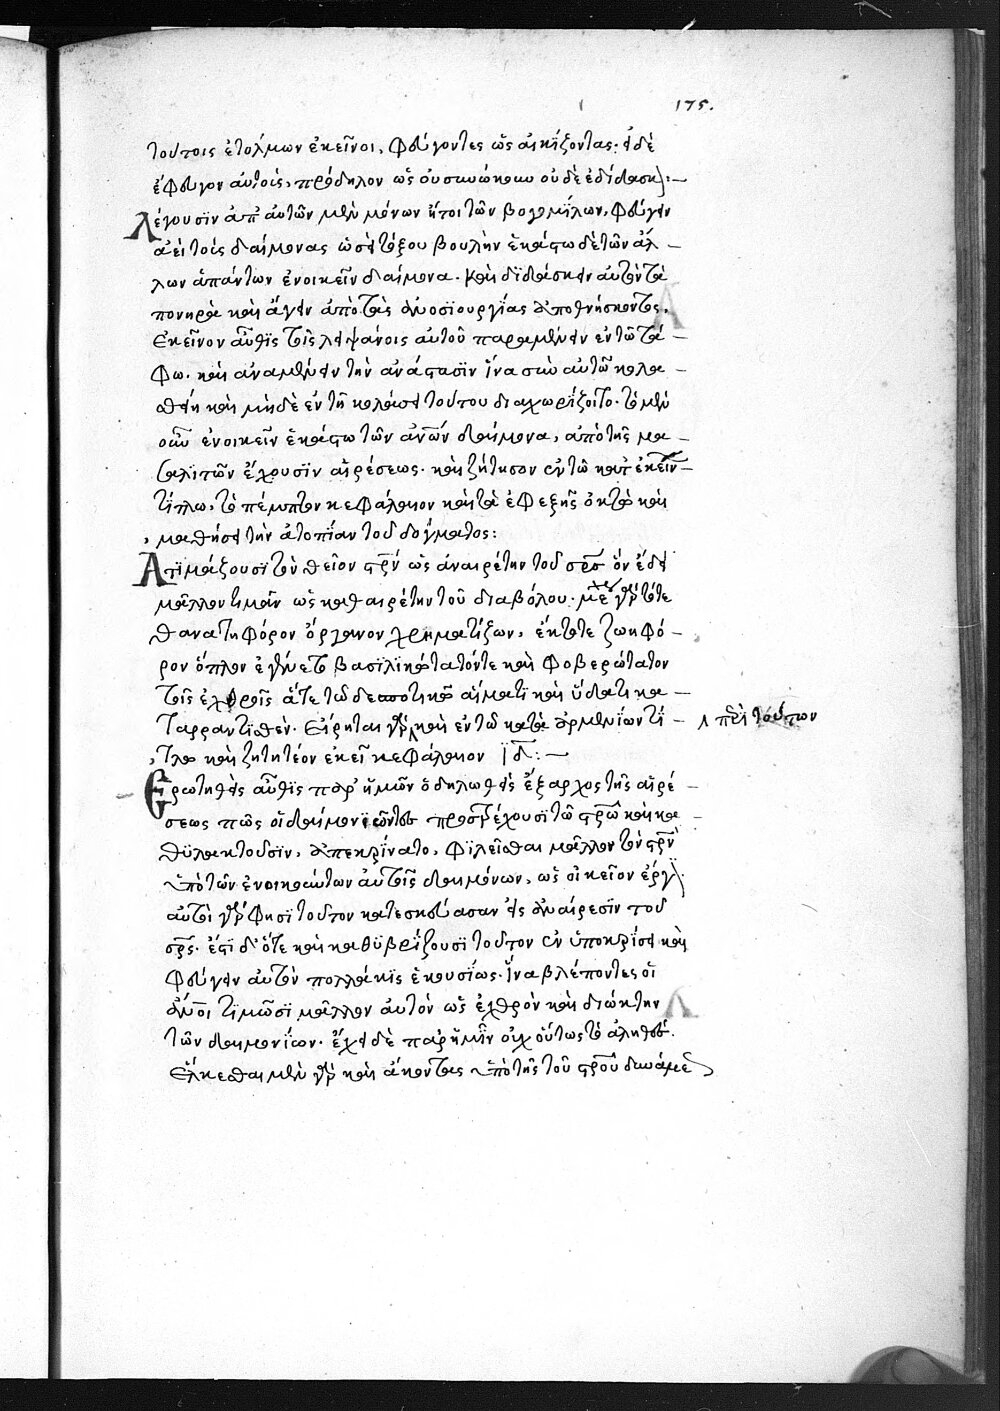 175.
τούτοις ἐτόλμων ἐκεῖνοι, φεύγοντες ὡς αἰκίζοντας· εἰ δὲ
ἔφευγον αὐτοὺς, πρόδηλον ὡς οὐ συνῴκουν οὐδὲ ἐδίδασκ
Λέγουσϊν ἀπ' αὐτῶν μὲν μόνων ἤτοι τῶν βογομίλων, φεύγειν
ἀεὶ τοὺς δαίμονας ὡσεὶ τόξου βουλὴν ἑκάστω δὲ τῶν ἀλ
λων ἁπάντων ἐνοικεῖν δαίμονα. καὶ διδάσκειν αὐτὸν τὰ
πονηρὰ καὶ ἄγειν ἀπὸ τὰς ἀνοσϊουργίας ἀποθνήσκοντος.
ἐκεῖνον αὖθϊς τοῖς λειψάνοις αὐτοῦ παραμένειν ἐν τῶ τά
φω. καὶ ἀναμένειν τὴν ἀνάστασϊν ἵνα σὺν αὐτῶ κολα
σθείη καὶ μηδὲ ἐν τῆ κολάσει τούτου διαχωρίζοιτο. τὸ μὲν
οὖν ἐνοικεῖν ἑκάστω τῶν ἀνων δαίμονα, ἀπὸ τῆς μα
σαλιτῶν ἔχουσϊν αἱρέσεως. καὶ ζήτησον ἐν τῶ κατ' ἐκείν
τίτλω, τὸ πέμπτον κεφάλαιον καὶ τὰ ἐφεξῆς ὀκτὼ καὶ
μαθήσει τὴν ἀτοπίαν τοῦ δόγματος:
Ἀτϊμάζουσϊ τὸν θεῖον στρν ὡς ἀναιρέτην τοῦ σρσ ὃν ἔδει
μᾶλλον τιμᾶν ὡς καθαιρέτην τοῦ διαβόλου. γὰρ τότε
θανατηφόρον ὄργανον χρηματίζων, ἔκτοτε ζωηφό
ρον ὅπλον ἐγένετο βασϊλικώτατόν τε καὶ φοβερώτατον
τοῖς ἐχθροῖς ἅτε τῶ δεσποτικῶ αἵματϊ καὶ ὕδατι κα
ταρραντισθέν. εἴρηται γὰρ καὶ ἐν τῶ κατὰ ἀρμενίων τί
περὶ τούτων
τλω καὶ ζητητέον ἐκεῖ κεφάλαιον ιδ:
Ἐρωτηθεὶς αὖθϊς παρ' ἡμῶν ὁ δηλωθεὶς ἔξαρχος τῆς αἱρέ
σεως πῶς οἱ δαίμον προστρέχουσϊ τῶ στρῶ καὶ κα
θϋλακτοῦσϊν, ἀπεκρίνατο, φϊλεῖσθαι μᾶλλον τὸν στρν
ὑπὸ τῶν ἐνοικούντων αὐτοῖς δαιμόνων, ὡς οἰκεῖον ἔργ
αὐτοὶ γὰρ φησϊ τοῦτον κατεσκεύασαν εἰς ἀναίρεσϊν τοῦ
σρσ. ἔστϊ δ' ὅτε καὶ καθϋβρίζουσϊ τοῦτον ἐν ὑποκρίσει καὶ
φεύγειν αὐτὸν πολλάκϊς ἑκουσίως. ἵνα βλέποντες οἱ
ἀνοι τϊμῶσϊ μᾶλλον αὐτὸν ὡς ἐχθρὸν καὶ διώκτην
τῶν δαιμονίων. ἔχει δὲ παρ' ἡμῖν οὐχ οὕτως τὸ ἀληθές.
ἕλκεσθαι μὲν γὰρ καὶ ἄκοντας ὑπὸ τῆς τοῦ στρου δυνάμε